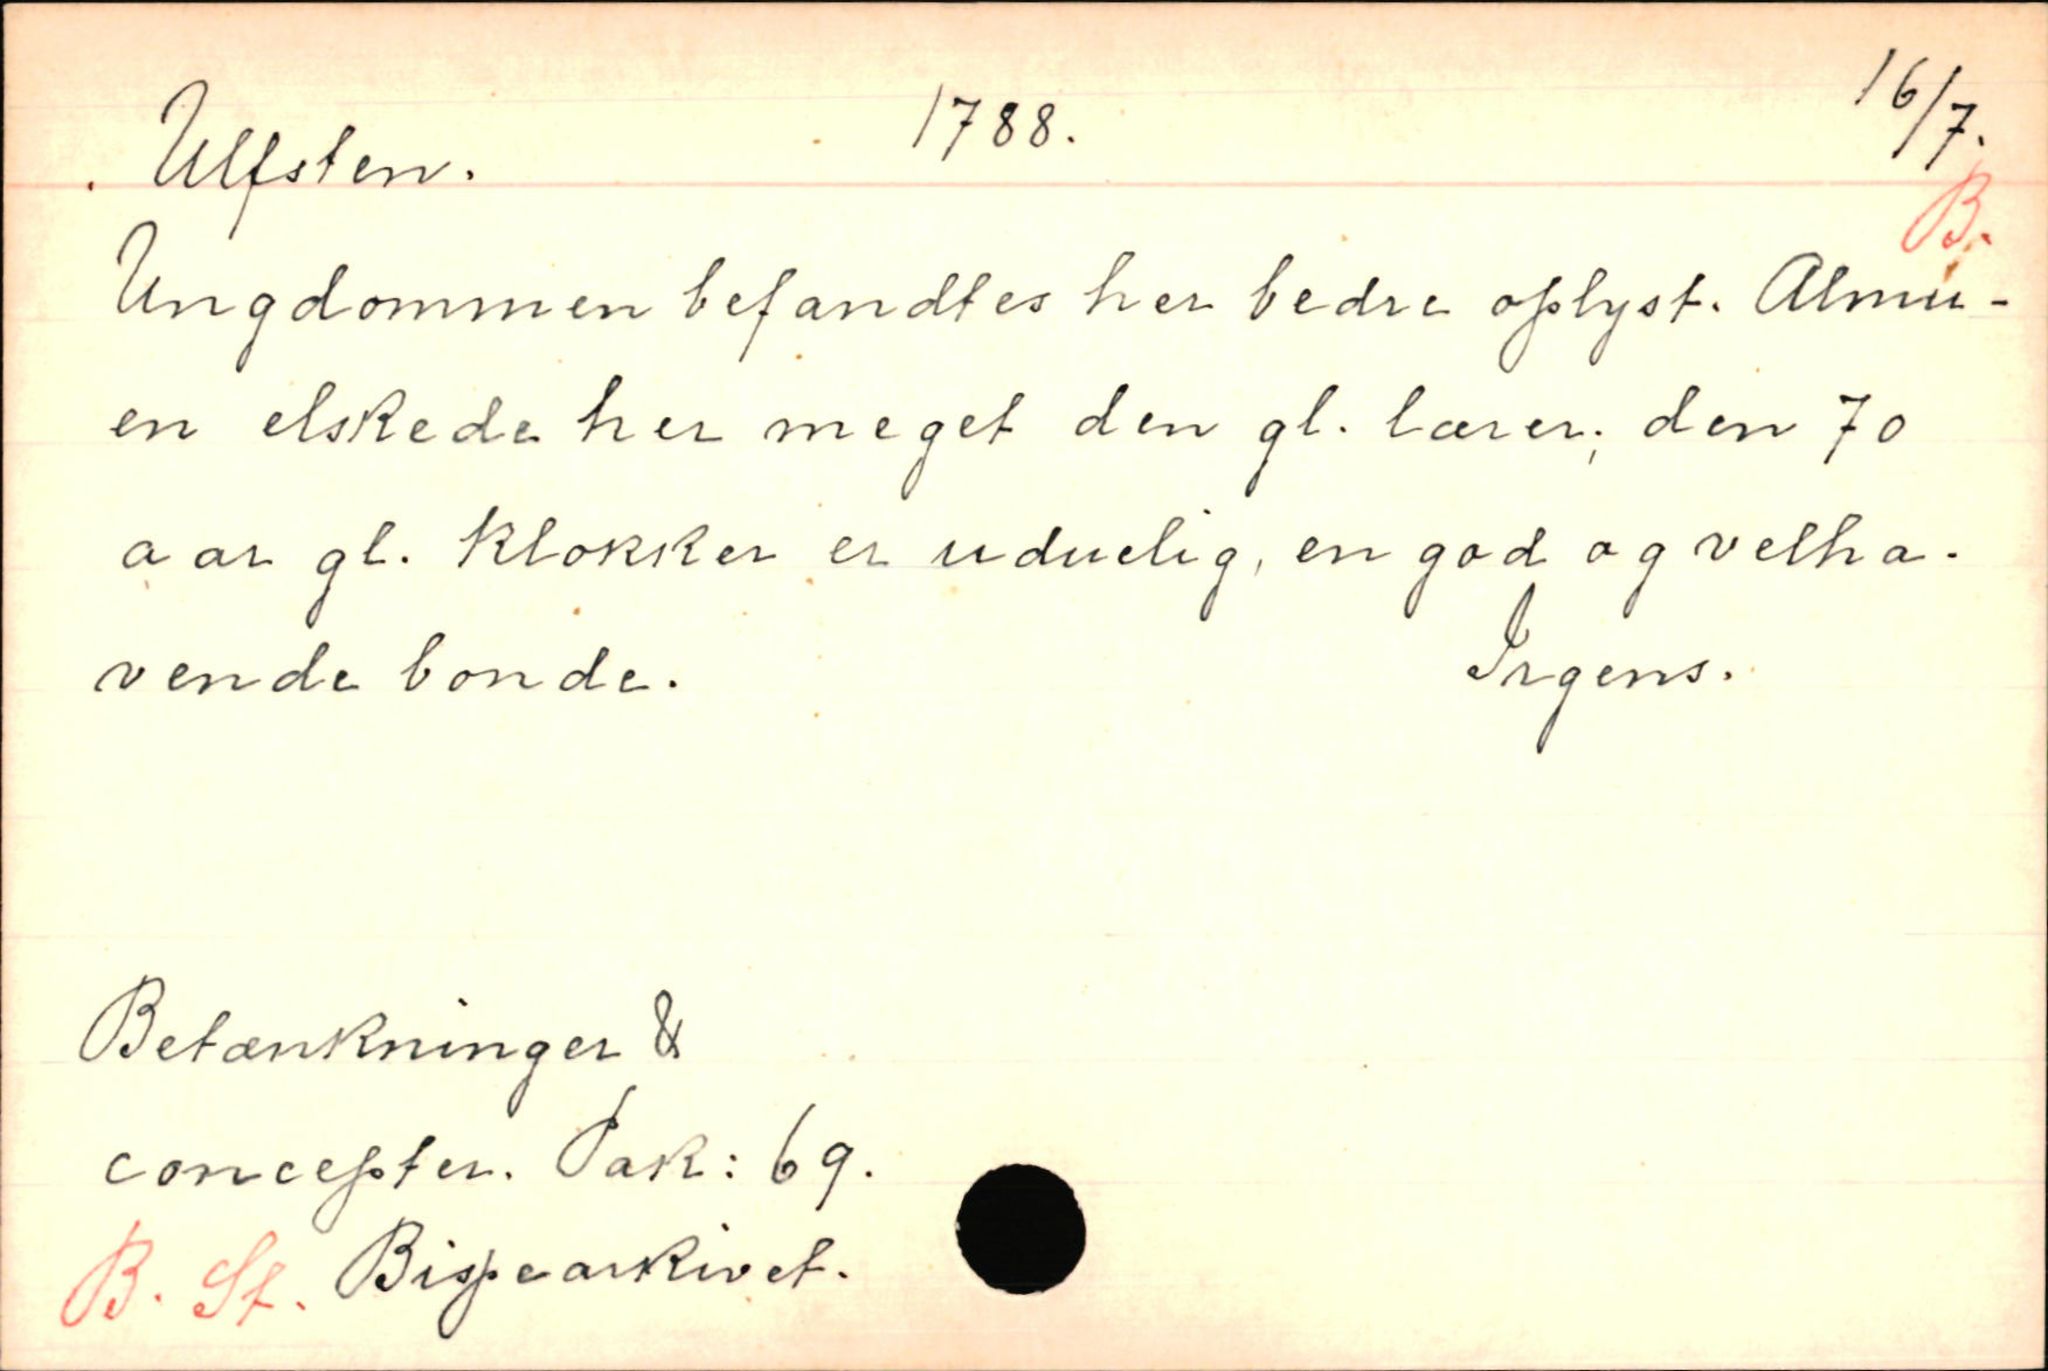 Ulfsten. 1788. 16/7.
B.
Ungdommen befandtes her bedre oplyst. Almu-
en elskede her meget den gl. lærer; den 70
aar gl. klokker er uduelig, en god og velha-
vende bonde. Irgens.
Betænkninger &
concepter. Pak: 69.
B. St. Bispearkivet.